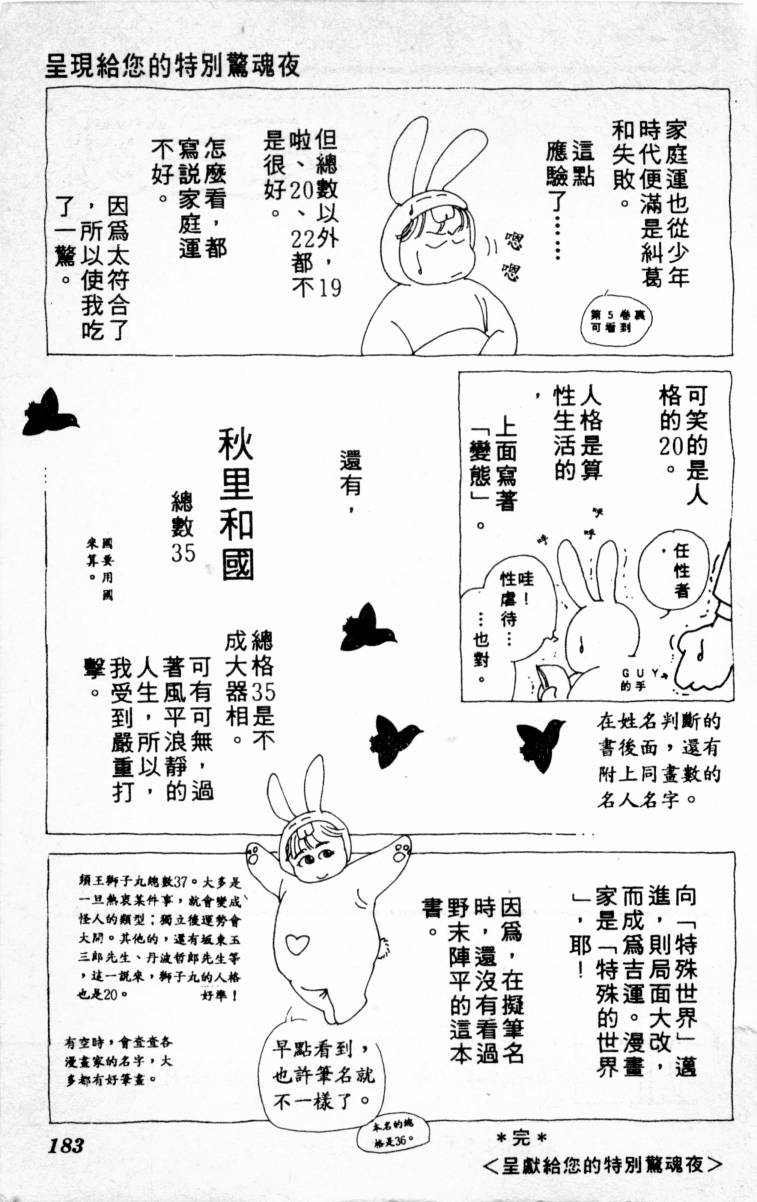 呈現給您的特別驚魂夜
家庭運也從少年
時代便滿是糾葛
和失敗。
這點
應驗了……
第5卷裏
可看到
嗯
嗯
但總數以外，19
啦、20、22都不
是很好。
怎麼看，都
寫說家庭運
不好。
因爲太符合了
，所以使我吃
了一驚。
可笑的是人
格的20。
人格是算
性生活的
，
上面寫著
「變態」。
任性者
．
呼
呼
呼
哇！
性虐待…
…也對。
GUY
的手
在姓名判斷的
書後面，還有
附上同畫數的
名人名字。
還有，
秋里和國
總數35
國要用國
來算。
總格35是不
成大器相。
可有可無，過
著風平浪靜的
人生，所以，
我受到嚴重打
擊。
向「特殊世界」邁
進，則局面大改，
而成爲吉運。漫畫
家是「特殊的世界
」，耶！
因爲，在擬筆名
時，還沒有看過
野末陣平的這本
書。
須王獅子丸總數37。大多是
一旦熱衷某件事，就會變成
怪人的類型；獨立後運勢會
大開。其他的，還有坂東玉
三郎先生、丹波哲郎先生等
，這一說來，獅子丸的人格
也是20。 好準！
有空時，會查查各
漫畫家的名字，大
多都有好筆畫。
早點看到，
也許筆名就
不一樣了。
本名的總
格是36。
＊完＊
＜呈獻給您的特別驚魂夜＞
183